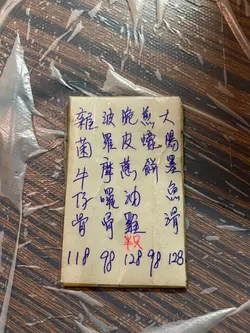 大腸墨魚滑 128
煎蠔餅 98
脆皮蔥油雞 半只 128
波羅 骨 98
雜菌牛仔骨 118